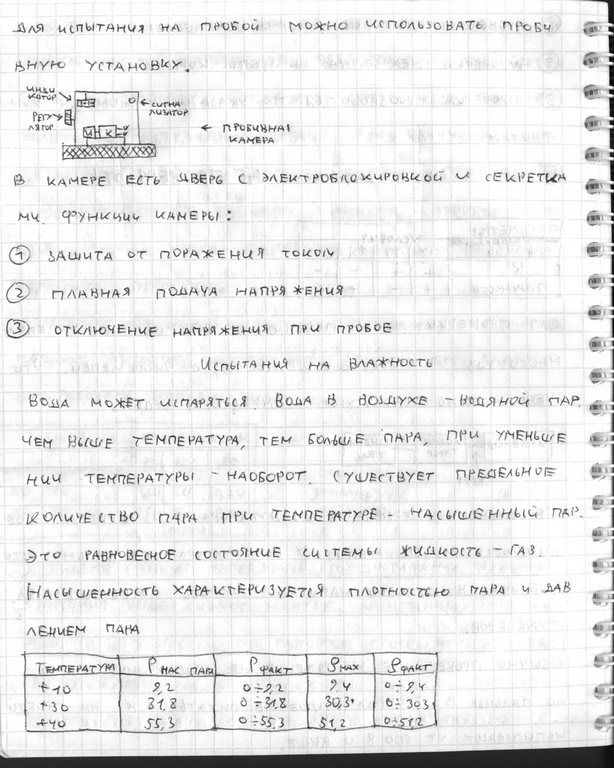 ДЛЯ ИСПЫТАНИЯ НА ПРОБОЙ МОЖНО ИСПОЛЬЗОВАТЬ ПРОБИ
ВНУЮ УСТАНОВКУ.
ИНДИ
КАТОР
РЕГУ
ЛЯТОР
СИГНА
ЛИЗАТОР
И К
← ПРОБИВНАЯ
КАМЕРА
В КАМЕРЕ ЕСТЬ ДВЕРЬ С ЭЛЕКТРОБЛОКИРОВКОЙ И СЕКРЕТКА
МИ. ФУНКЦИИ КАМЕРЫ:
① ЗАЩИТА ОТ ПОРАЖЕНИЯ ТОКОМ
② ПЛАВНАЯ ПОДАЧА НАПРЯЖЕНИЯ
③ ОТКЛЮЧЕНИЕ НАПРЯЖЕНИЯ ПРИ ПРОБОЕ
ИСПЫТАНИЯ НА ВЛАЖНОСТЬ
ВОДА МОЖЕТ ИСПАРЯТЬСЯ. ВОДА В ВОЗДУХЕ - ВОДЯНОЙ ПАР.
ЧЕМ ВЫШЕ ТЕМПЕРАТУРА, ТЕМ БОЛЬШЕ ПАРА, ПРИ УМЕНЬШЕ
НИИ ТЕМПЕРАТУРЫ - НАОБОРОТ. СУЩЕСТВУЕТ ПРЕДЕЛЬНОЕ
КОЛИЧЕСТВО ПАРА ПРИ ТЕМПЕРАТУРЕ - НАСЫЩЕННЫЙ ПАР.
ЭТО РАВНОВЕСНОЕ СОСТОЯНИЕ СИСТЕМЫ ЖИДКОСТЬ - ГАЗ.
НАСЫЩЕННОСТЬ ХАРАКТЕРИЗУЕТСЯ ПЛОТНОСТЬЮ ПАРА И ДАВ
ЛЕНИЕМ ПАРА
ТЕМПЕРАТУРА P НАС ПАРА P ФАКТ ρ МАХ ρ ФАКТ
+10 9,2 0÷9,2 9,4 0÷9,4
+30 31,8 0÷31,8 30,3 0÷30,3
+40 55,3 0÷55,3 51,2 0÷51,2